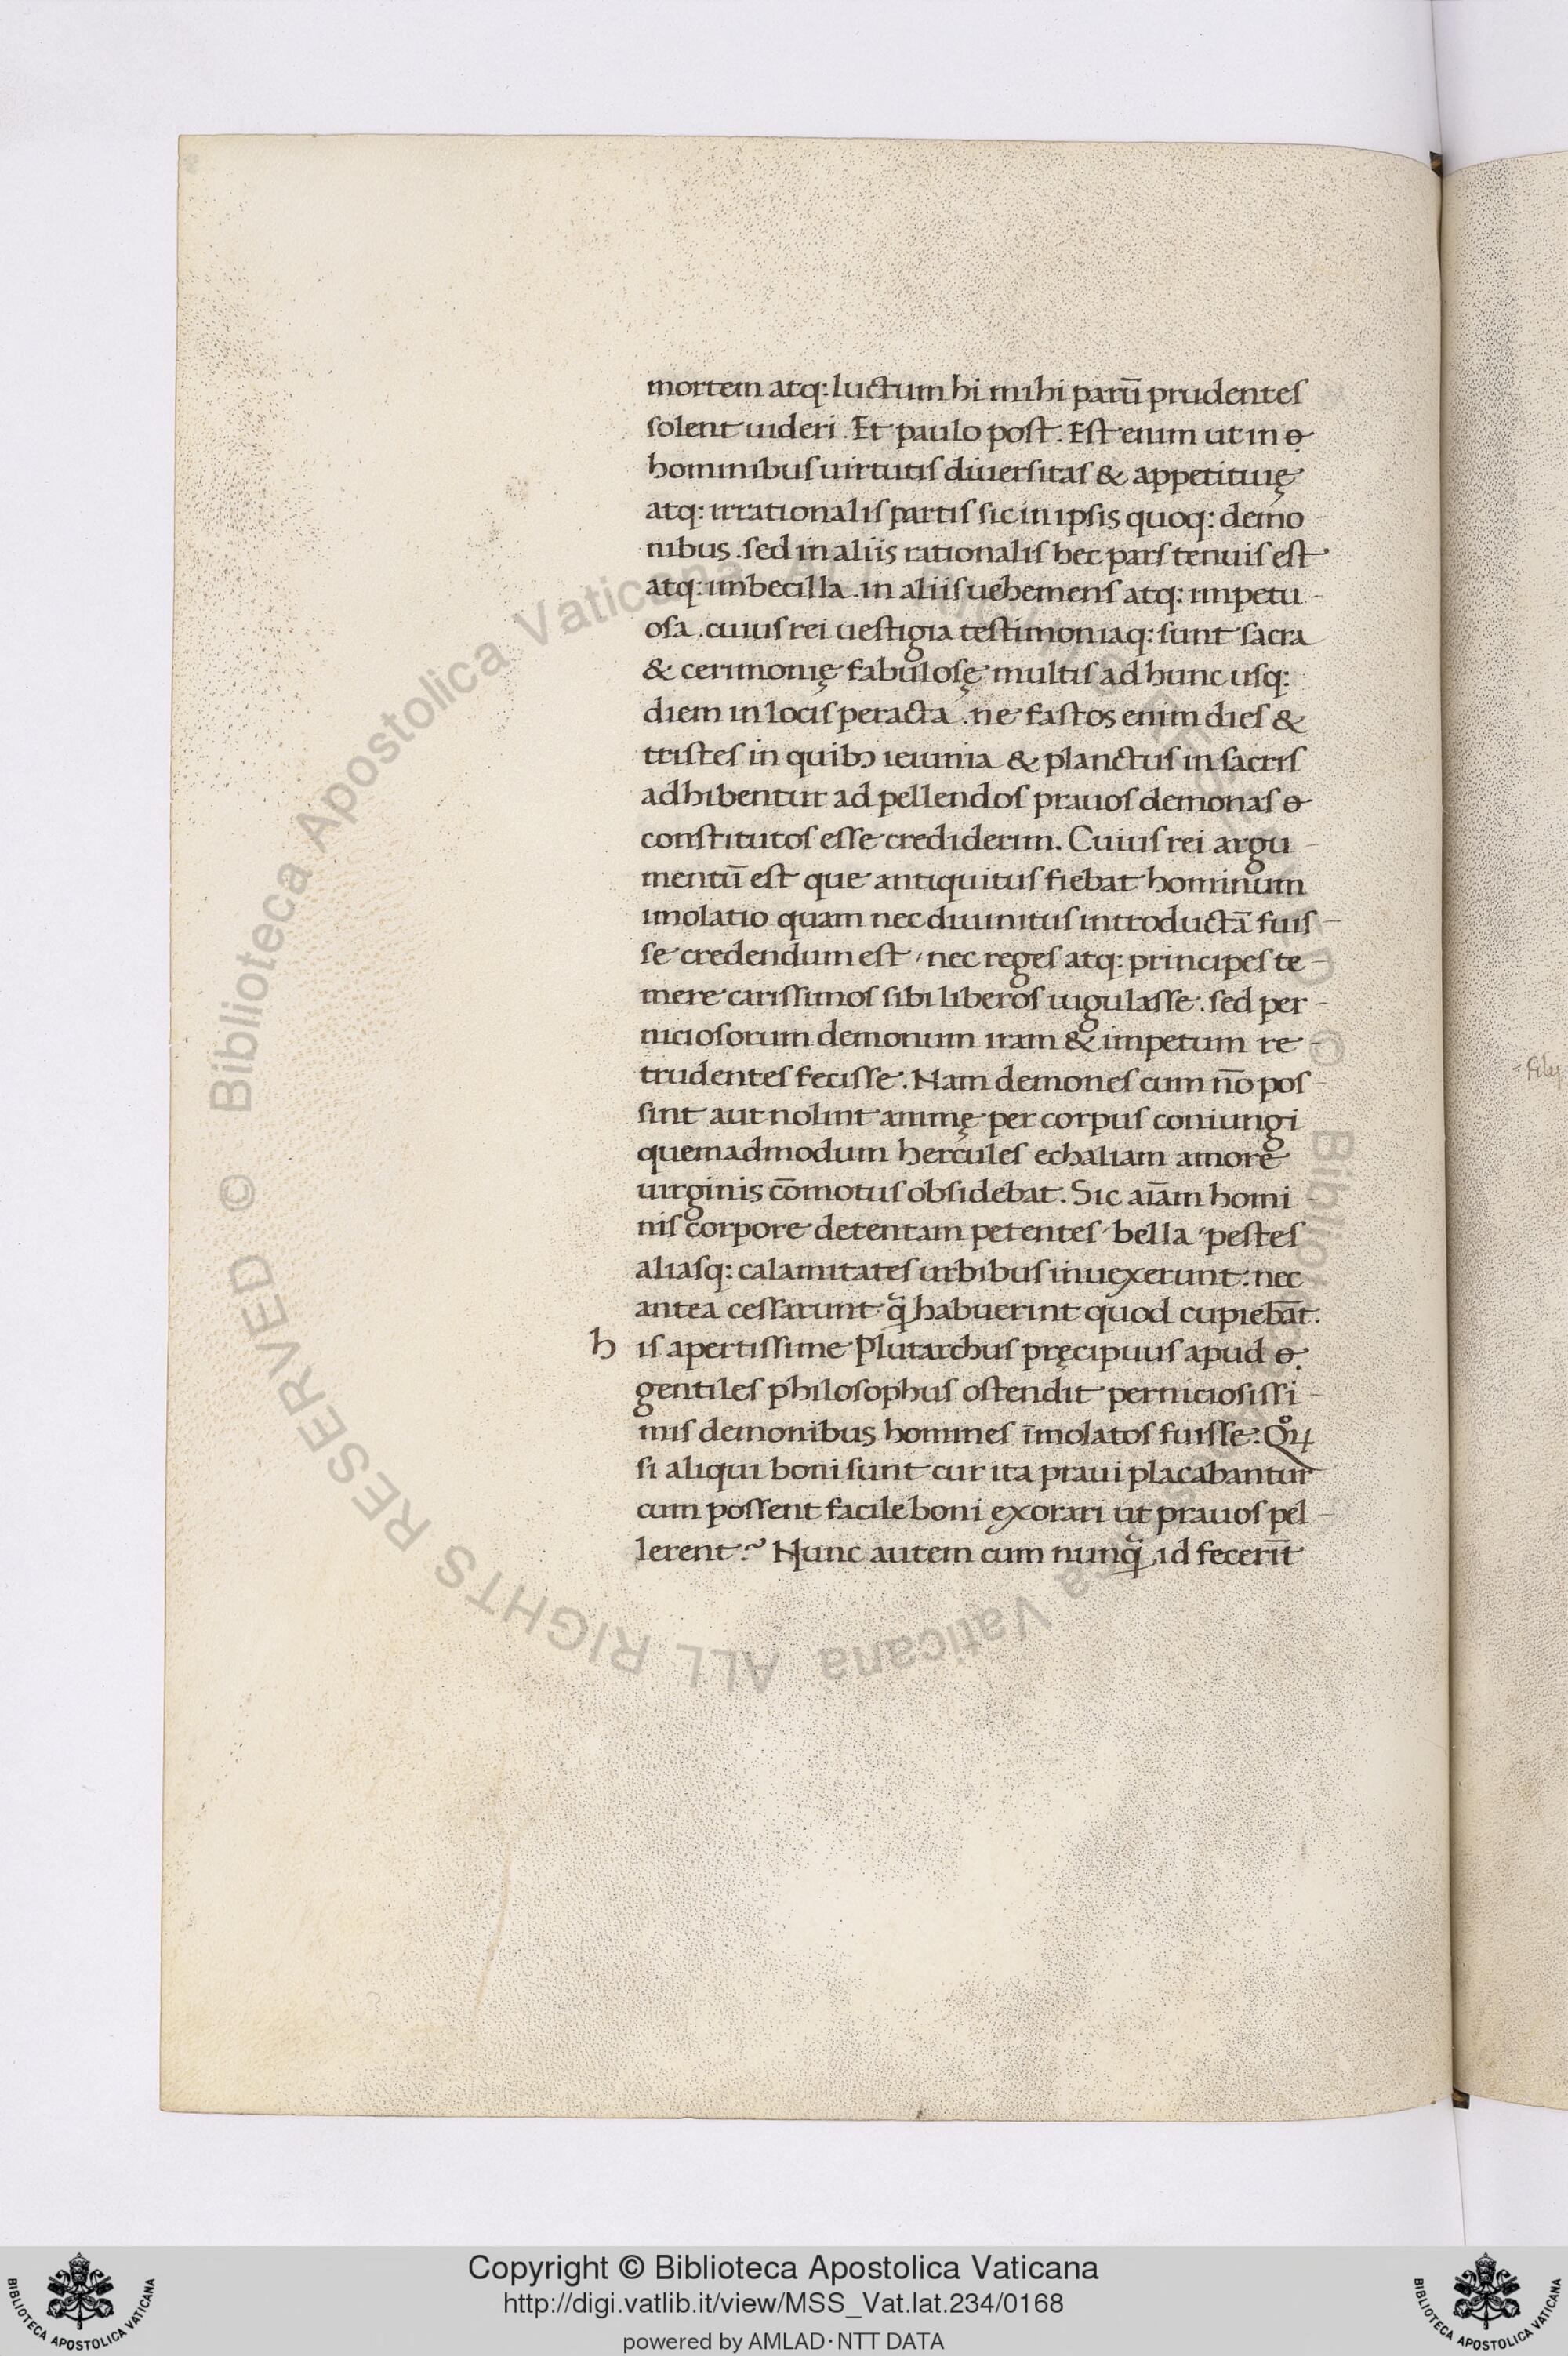 mortem atq: luctum hi mihi parū prudentes
solent uideri. Et paulo post. Est enim ut in
hominibus uirtutis diuersitas & appetitiuę
atq: irrationalis partis sic in ipsis quoq: demo-
nibus. sed in aliis rationalis hec pars tenuis est
atq: imbecilla. in aliis uehemens atq: impetu-
osa. cuius rei uestigia testimoniaq: sunt sacra
& cerimonię fabulosę multis ad hunc usq:
diem in locis peracta. ne fastos enim dies &
tristes in quibꝫ ieiunia & planctus in sacris
adhibentur ad pellendos prauos demonas
constitutos esse crediderim. Cuius rei argu-
mentū est que antiquitus fiebat hominum
imolatio quam nec diuinitus introductā fuis-
se credendum est, nec reges atq: principes te-
mere carissimos sibi liberos iugulasse. sed per-
niciosorum demonum iram & impetum re-
trudentes fecisse. Nam demones cum nō pos-
sint aut nolint animę per corpus coniungi
quemadmodum hercules echaliam amore
uirginis cōmotus obsidebat. Sic aīam homi-
nis corpore detentam petentes, bella, pestes
aliasq: calamitates urbibus inuexerunt: nec
antea cessarunt q̄ habuerint quod cupiebāt.
his apertissime Plutarchus pręcipuus apud
gentiles philosophus ostendit perniciosissi-
mis demonibus homines īmolatos fuisse. Qͦꝝ
si aliqui boni sunt cur ita praui placabantur
cum possent facile boni exorari ut prauos pel-
lerent? Nunc autem cum nunq̄ id fecerīt
Copyright © Biblioteca Apostolica Vaticana
http://digi.vatlib.it/view/MSS_Vat.lat.234/0168
powered by AMLAD·NTT DATA
BIBLIOTECA APOSTOLICA VATICANA
BIBLIOTECA APOSTOLICA VATICANA
© Biblioteca Apostolica Vaticana ALL RIGHTS RESERVED